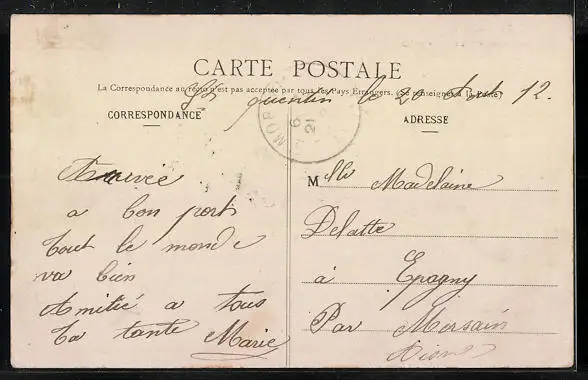 CARTE POSTALE
La Correspondance au recto n'est pas acceptée par tous les Pays Étrangers. (Se renseigner à la Poste)
St quentin le 20 Aout 12.
CORRESPONDANCE
Arrivée
a bon port
tout le monde
va bien
Amitié a tous
ta tante
Marie
ADRESSE
Mlle Madelaine
Delatte
à Epagny
Par Morsain
Aisne
MOR
6
21